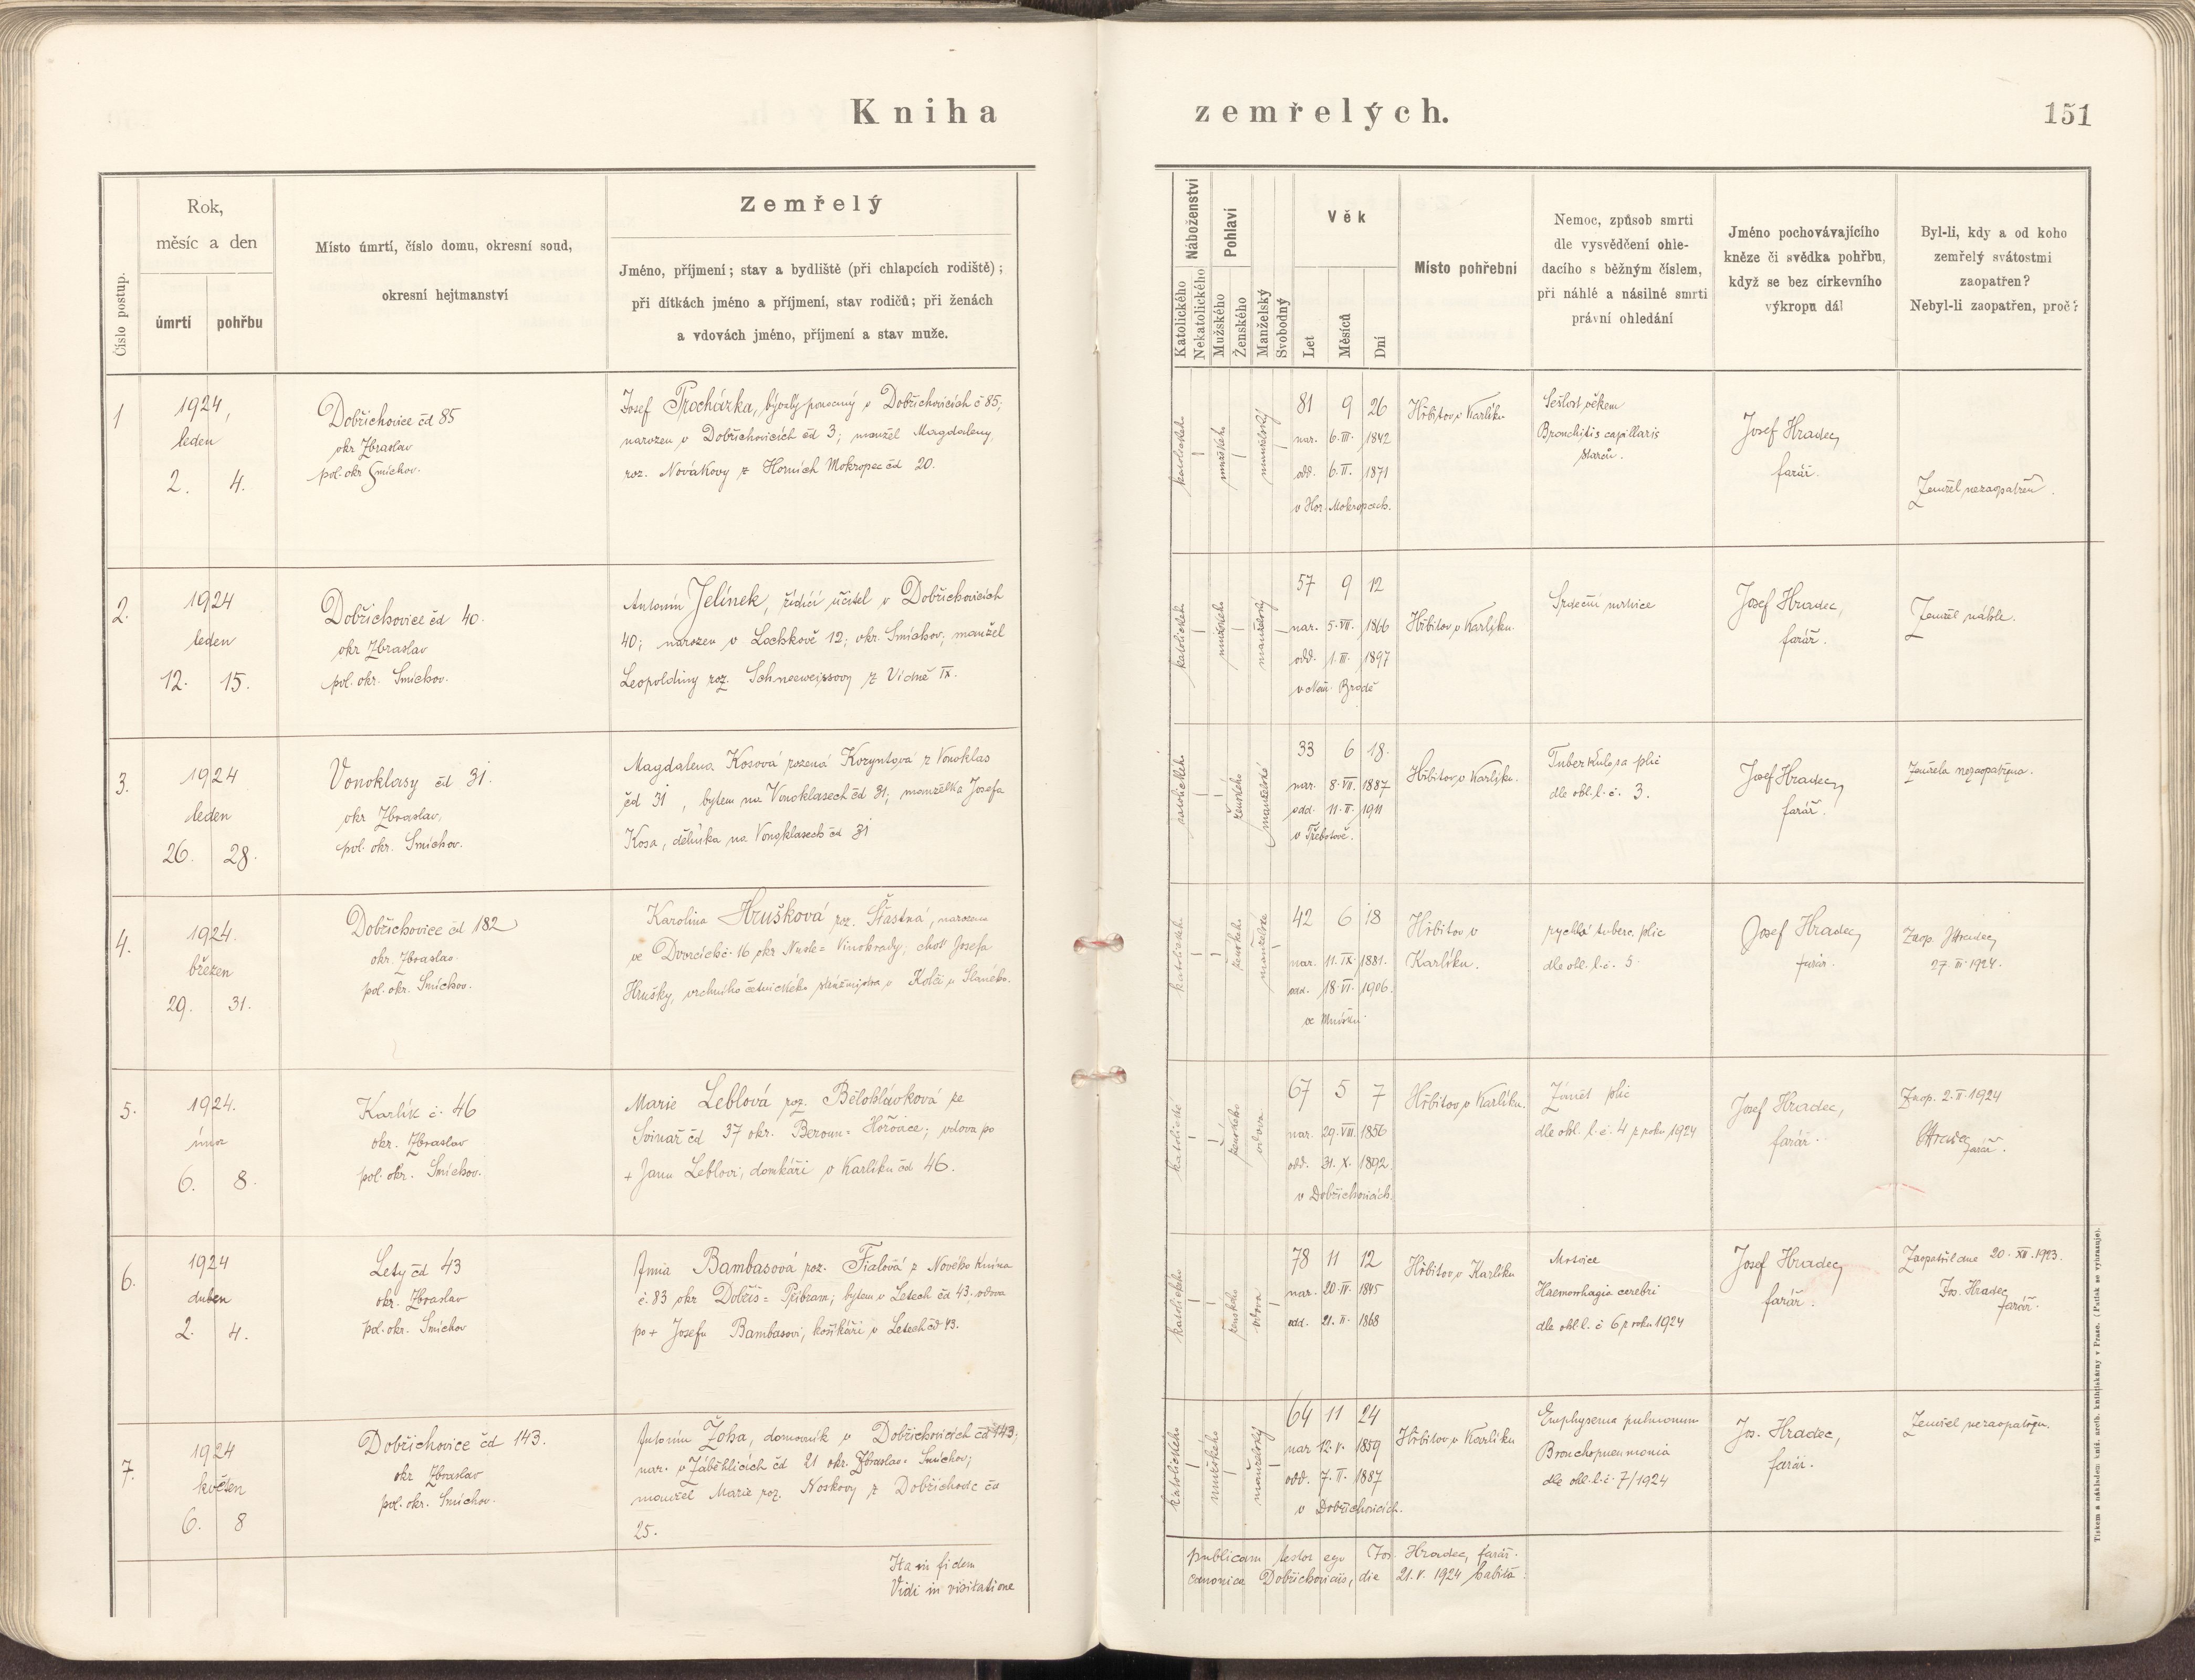 Kniha zemřelých.
151
Číslo postup.
Rok,
měsíc a den
úmrtí
pohřbu
Místo úmrtí, číslo domu, okresní soud,
okresní hejtmanství
Zemřelý
Jméno, příjmení; stav a bydliště (při chlapcích rodiště);
při dítkách jméno a příjmení, stav rodičů; při ženách
a vdovách jméno, příjmení a stav muže.
Náboženství
Katolického
Nekatolického
Pohlaví
Mužského
Ženského
Manželský
Svobodný
Věk
Let
Měsíců
Dní
Místo pohřební
Nemoc, způsob smrti
dle vysvědčení ohle-
dacího s běžným číslem,
při náhlé a násilné smrti
právní ohledání
Jméno pochovávajícího
kněze či svědka pohřbu,
když se bez církevního
výkropu dál
Byl-li, kdy a od koho
zemřelý svátostmi
zaopatřen?
Nebyl-li zaopatřen, proč?
1
1924,
leden
2. 4.
Dobřichovice čd 85
okr Zbraslav
pol. okr Smíchov.
Josef Procházka, bývalý v Dobřichovicích č 85;
narozen v Dobřichovicích čd 3; manžel Magdaleny,
roz. Novákovy z Horních Mokropec čd 20.
katolického
mužského
manželský
81 9 26
nar. 6. III. 1842
odd. 6. II. 1871
v Hor. Mokropcech.
Hřbitov v Karlíku
Sešlost věkem
Bronchitis capillaris
starců.
Josef Hradec,
farář.
Zemřel nezaopatřen.
2.
1924
leden
12. 15.
Dobřichovice čd 40.
okr Zbraslav
pol. okr. Smíchov.
Antonín Jelínek, řídící učitel v Dobřichovicích
40; narozen v Lochkově 12; okr. Smíchov; manžel
Leopoldiny roz. Schneeweissovy z Vídně IX.
katolického
mužského
manželský
57 9 12
nar. 5. VII. 1866
odd. 1. III. 1897
v Brodě
Hřbitov v Karlíku.
Srdeční mrtvice
Josef Hradec,
farář.
Zemřel náhle.
3.
1924
leden
26. 28.
Vonoklasy čd 31.
okr Zbraslav,
pol. okr. Smíchov.
Magdalena Kosová rozená Koryntová z Vonoklas
čd 31, bytem na Vonoklasech čd 31; manželka Josefa
Kosa, dělníka na Vonoklasech čd 31
katolického
ženského
manželské
33 6 18.
nar. 8. VII. 1887
odd. 11. II. 1911
v Třebotově.
Hřbitov v Karlíku.
Tuberkulosa plic
dle ohl. l. č. 3.
Josef Hradec,
farář.
Zemřela nezaopatřena.
4.
1924.
březen
29. 31.
Dobřichovice čd 182
okr. Zbraslav.
pol. okr. Smíchov.
Karolina Hrušková roz. Šťastná, narozena
ve Dvorcích č. 16 okr Nusle = Vinohrady; choť Josefa
Hrušky, vrchního četnického strážmistra v Kolči u Slaného.
katolického
ženského
manželské
42 6 18
nar. 11. IX. 1881.
odd. 18. VI. 1906.
ve Mníšku
Hřbitov v
Karlíku.
rychlá tuberc. plic
dle ohl. l. č. 5
Josef Hradec,
farář.
Zaop. J Hradec,
27. III. 1924.
5.
1924.
únor
6. 8.
Karlík č. 46
okr. Zbraslav
pol. okr. Smíchov.
Marie Leblová roz. Bělohlávková ze
Svinař čd 37 okr. Beroun = Hořovice; vdova po
+ Janu Leblovi, domkáři v Karlíku čd 46.
katolické
ženského
vdova
67 5 7
nar. 29. VIII. 1856
odd. 31. X. 1892.
v Dobřichovicích.
Hřbitov v Karlíku.
Zánět plic
dle ohl. l. č. 4 z roku 1924
Josef Hradec,
farář.
Zaop. 2. II. 1924
Hradec,
farář.
6.
1924
duben
2. 4.
Lety čd 43
okr. Zbraslav
pol. okr. Smíchov
Anna Bambasová roz. Fialová z Nového Knína
č. 83 okr Dobříš = Příbram; bytem v Letech čd 43. vdova
po + Josefu Bambasovi, košíkáři v Letech čd 43.
katolického
ženského
vdova
78 11 12
nar. 20. IV. 1845
odd. 21. II. 1868
Hřbitov v Karlíku
Mrtvice
Haemorrhagia cerebri
dle ohl. l. č 6 z roku 1924
Josef Hradec,
farář.
Zaopatřil dne 20. XII. 1923.
Jos. Hradec,
farář.
7.
1924
květen
6. 8
Dobřichovice čd 143.
okr Zbraslav
pol. okr. Smíchov.
Antonín Zoha, domovník v Dobřichovicích čd 143;
nar. v Záběhlicích čd 21 okr. Zbraslav = Smíchov;
manžel Marie roz. Noskovy z Dobřichovic čd
25.
katolického
mužského
manželský
64 11 24
nar 12. V. 1859
odd. 7. II. 1887
v Dobřichovicích.
Hřbitov v Karlíku
Emphysema pulmonum
Bronchopneumonia
dle ohl. l. č. 7/1924
Jos. Hradec,
farář.
Zemřel nezaopatřen.
Ita in fidem publicam testor ego Jos. Hradec, farář.
Vidi in visitatione canonica Dobřichovicii, die 21. V. 1924 habita.
Tiskem a nákladem kníž. arcib. knihtiskárny v Praze. (Patisk se vyhrazuje).